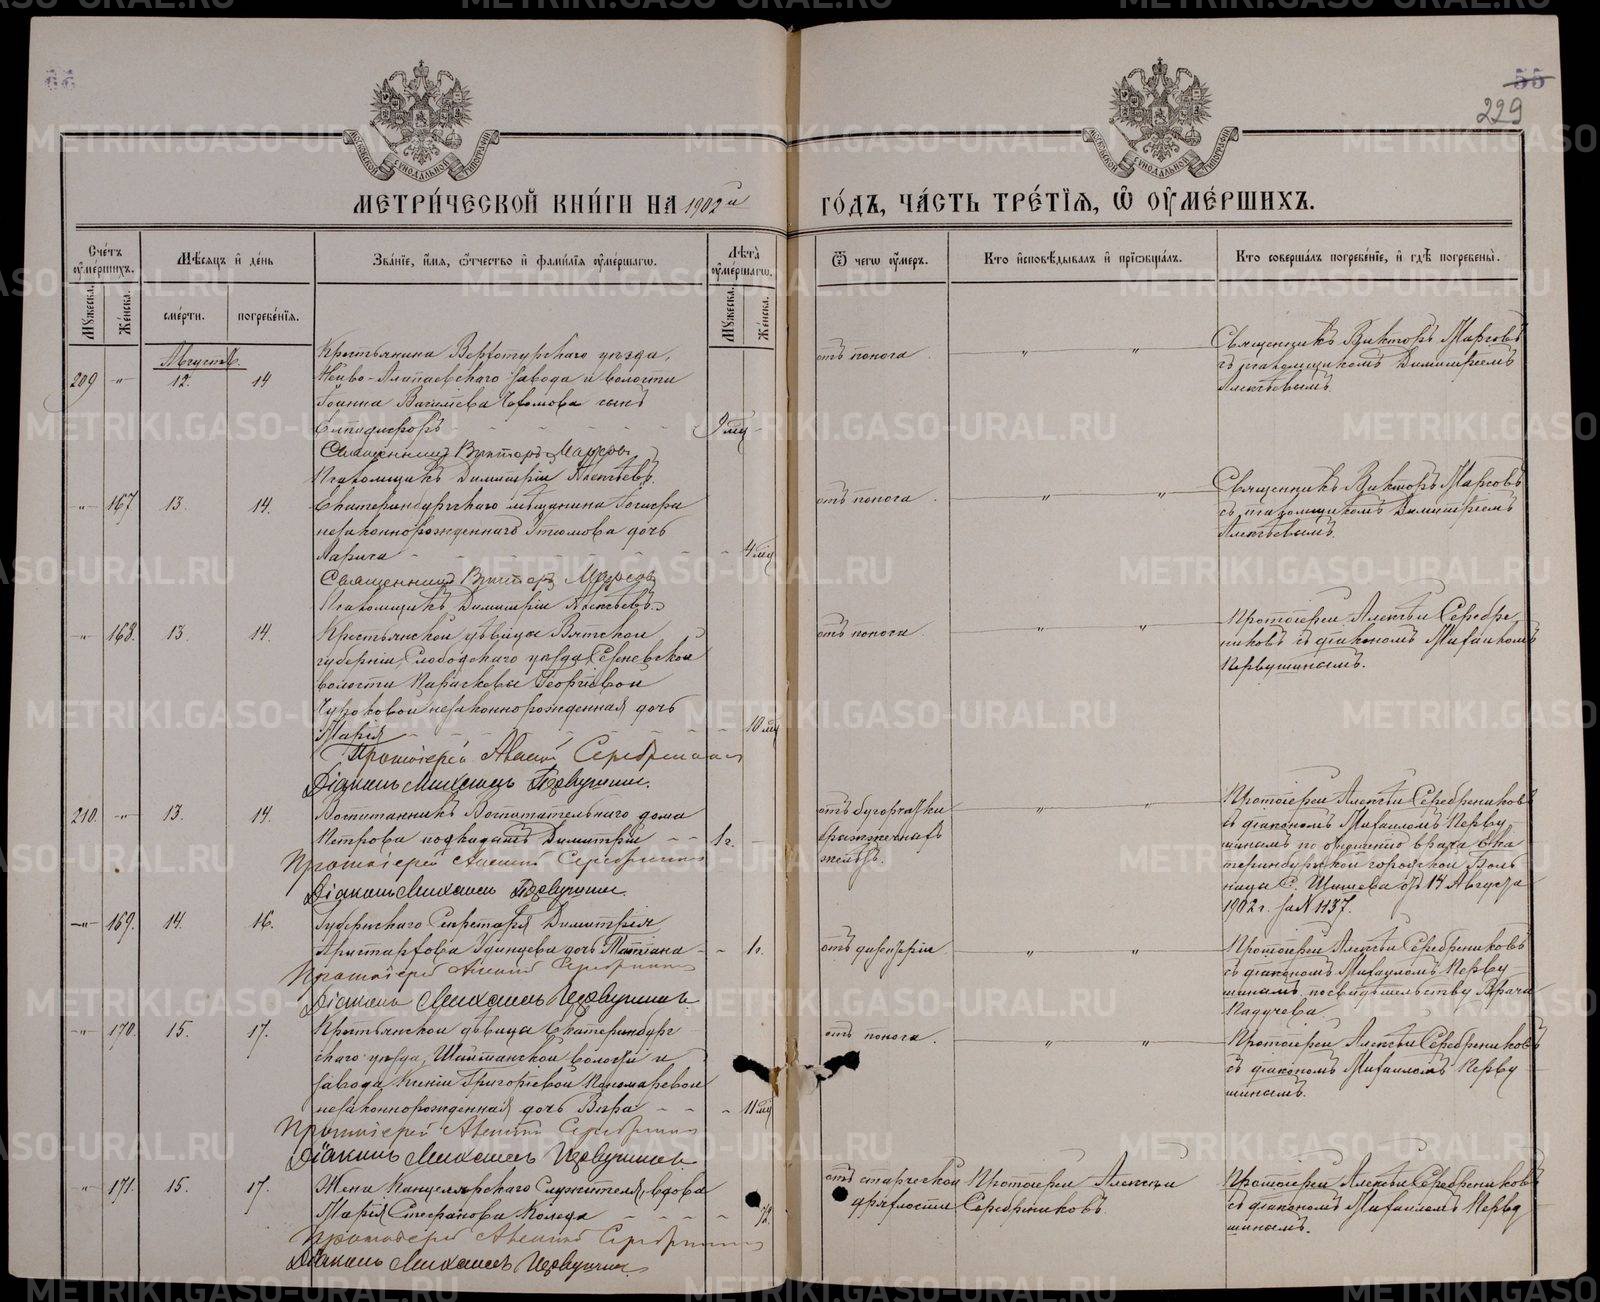 55
55
229
МЕТРИ́ЧЕСКОЙ КНИ́ГИ НА 1902 й
ГО́ДЪ, ЧА́СТЬ ТРЕ́ТІѦ, Ѿ ОУМЕ́РШИХЪ.
Сче́тъ оуме́ршихъ.
Мѣ́сяцъ и де́нь
Зва́ніе, и́мя, о́тчество и фами́лія оуме́ршагѡ.
Лѣта̀ оуме́ршагѡ.
Ѿ чегѡ оу́меръ.
Кто̀ исповѣ́дывалъ и пріѡбща́лъ.
Кто̀ соверша́лъ погребе́ніе, и гдѣ̀ погребены̀.
Му́жеска.
Же́нска.
сме́рти.
погребе́нія.
Му́жеска.
Же́нска.
Августъ.
209 " 12. 14
Крестьянина Верхотурскаго уѣзда,
Нейво-Алапаевскаго завода и волости
Іоанна Василіева сынъ
Елпидифоръ 9 мц
Священникъ Викторъ Марсовъ
Псаломщикъ Димитрій Алексѣевъ.
отъ поноса " "
Священникъ Викторъ Марсовъ
съ псаломщикомъ Димитріемъ
Алексѣевымъ.
" 167. 13. 14.
Екатеринбургскаго мѣщанина
незаконнорожденнаго дочь
Лариса 4 мц
Священникъ Викторъ Марсовъ
Псаломщикъ Димитрій Алексѣевъ.
отъ поноса " "
Священникъ Викторъ Марсовъ
съ псаломщикомъ Димитріемъ
Алексѣевымъ.
" 168. 13. 14.
Крестьянской дѣвицы Вятской
губерніи, Слободскаго уѣзда,
волости Параскевы Георгіевой
незаконнорожденная дочь
Марія 10 мц
Протоіерей Алексѣй Серебренниковъ
Діаконъ Михаилъ Первушинъ.
отъ поноса " "
Протоіерей Алексѣй Серебре
никовъ съ діакономъ Михаиломъ
Первушинымъ.
210. " 13. 14.
Воспитанникъ Воспитательнаго дома
Петрова подкидышъ Димитрій 1 г.
Протоіерей Алексѣй Серебренниковъ
Діаконъ Михаилъ Первушинъ.
отъ бугорчатки
железъ. " "
Протоіерей Алексѣй Серебрениковъ
съ діакономъ Михаиломъ Перву
шинымъ по отношенію врача Ека
теринбургской городской Боль
ницы С. отъ 14 Августа
1902 г. за N 1137.
" 169. 14. 16.
Губернскаго Секретаря Димитрія
Аристархова Удинцева дочь Татіана 1 г.
Протоіерей Алексѣй Серебренниковъ
Діаконъ Михаилъ Первушинъ.
отъ дизентеріи " "
Протоіерей Алексѣй Серебрениковъ
съ діакономъ Михаиломъ Перву
шинымъ, по свидѣтельству Врача
Падучева.
" 170. 15. 17.
Крестьянской дѣвицы Екатеринбург
скаго уѣзда, Шайтанской волости и
завода Ксеніи Григоріевой Пономаревой
незаконнорожденная дочь Вѣра 11 мц
Протоіерей Алексѣй Серебренниковъ
Діаконъ Михаилъ Первушинъ.
отъ поноса. " "
Протоіерей Алексѣй Серебрениковъ
съ діакономъ Михаиломъ Перву
шинымъ.
" 171. 15. 17.
Жена Канцелярскаго Служителя, вдова
Марія Стефанова 72.
Протоіерей Алексѣй Серебренниковъ
Діаконъ Михаилъ Первушинъ.
отъ старческой
дряхлости
Протоіерей Алексѣй
Серебрениковъ.
Протоіерей Алексѣй Серебрениковъ
съ діакономъ Михаиломъ Перву
шинымъ.
METRIKI.GASO-URAL.RU